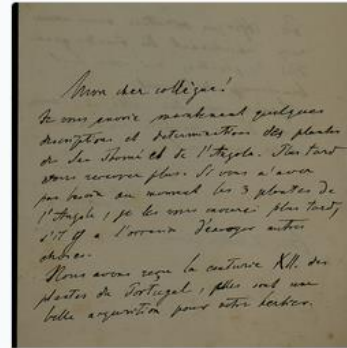 Mon cher collègue!
Je vous envoie maintenant quelques
descriptions et determinations des plantes
de San Thomé et de l'Angola. Plus tard
vous recevrez plus. Si vous n'avez
pas besoin au moment les 3 plantes de
l'Angola, je les vous plus tard,
s'il y a l'occasion d'envoyer autres
choses.
Nous avons reçu la centurie XII. des
plantes du Portugal, elles sont une
belle acquisition pour notre herbier.